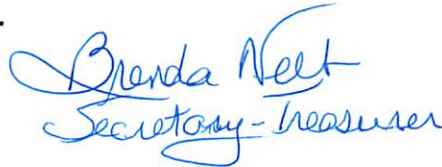 Brenda Neet
Secretary-Treasurer